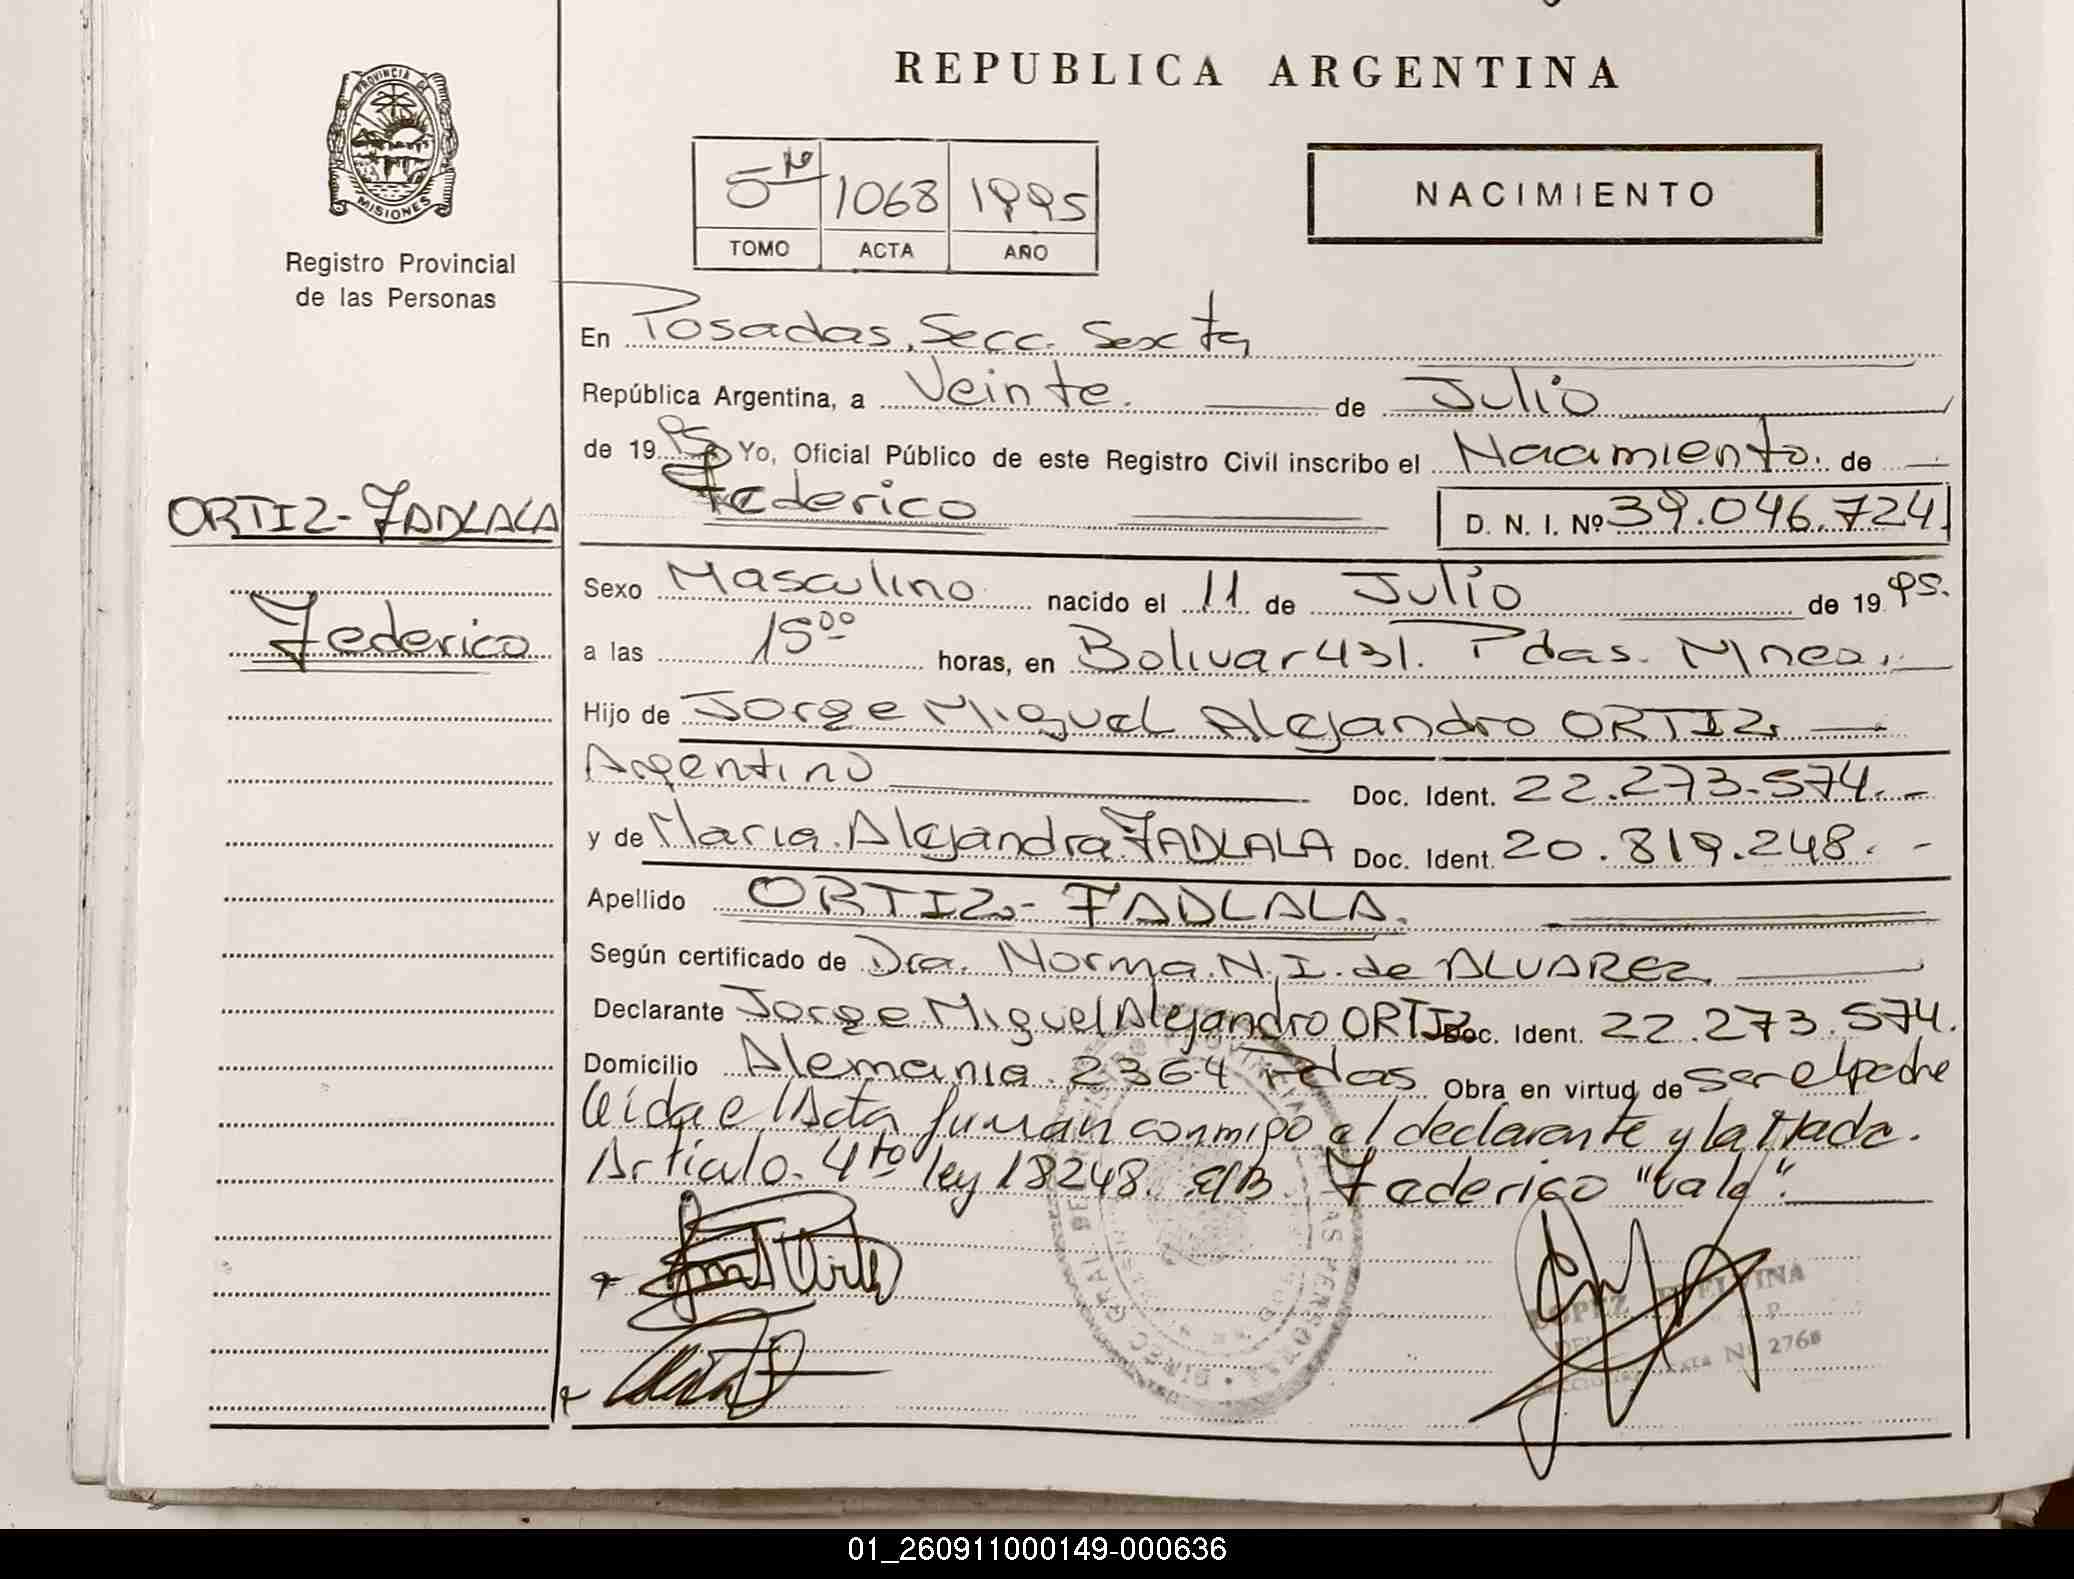 REPUBLICA ARGENTINA
PROVINCIA DE
MISIONES
Registro Provincial
de las Personas
5to 1068 1995
TOMO ACTA AÑO
NACIMIENTO
En Posadas, Secc. Sexta
República Argentina, a Veinte. de Julio
de 1995 Yo, Oficial Público de este Registro Civil inscribo el Nacimiento. de
Federico D. N. I. Nº 39.046.724
ORTIZ-FADLALA
Federico
Sexo Masculino nacido el 11 de Julio de 1995.
a las 15 00 horas, en Bolivar 431. Pdas. Mnes.
Hijo de Jorge Miguel Alejandro ORTIZ
Argentino Doc. Ident. 22.273.574.-
y de Maria Alejandra FADLALA Doc. Ident. 20.819.248.-
Apellido ORTIZ-FADLALA.
Según certificado de Dra. Norma N. I. de ALVAREZ
Declarante Jorge Miguel Alejandro ORTIZ Doc. Ident. 22.273.574.
Domicilio Alemania 2364 Pdas Obra en virtud de ser el padre
leida el Acta firman conmigo el declarante y la Madre.
Articulo 4to ley 18248. E/B. Federico "vale".
LOPEZ
Nº 2768
01_260911000149-000636